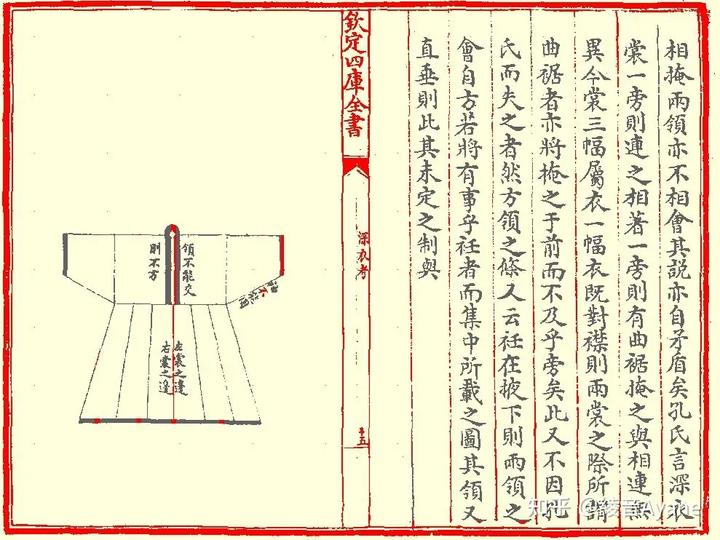 相掩兩領亦不相會其説亦自矛盾矣孔氏言深衣
裳一旁則連之相著一旁則有曲裾掩之與相連無
異今裳三幅屬衣一幅衣既對襟則兩裳之際所謂
曲裾者亦將掩之于前而不及乎旁矣此又不因孔
氏而失之者然方領之條又云衽在掖下則兩領之
會自方若將有事乎衽者而集中所載之圖其領又
直垂則此其未定之制與
欽定四庫全書
深衣考
十五
領不能交
則不方
左裳之邊
右裳之邊
知乎 @綾音Ayane